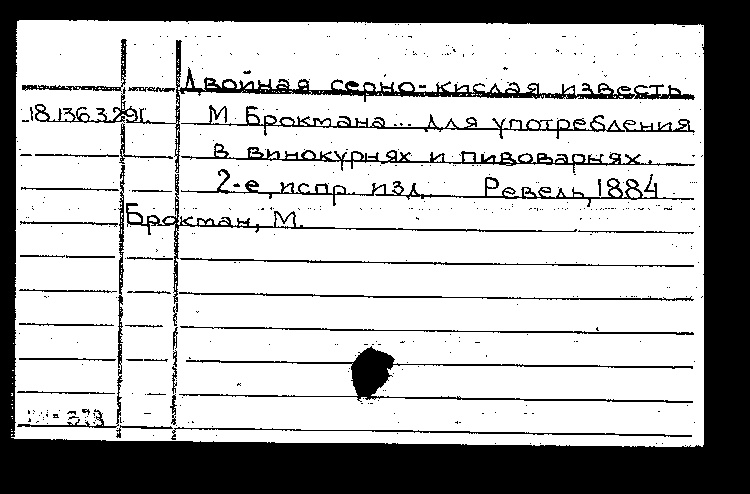 Двойная серно-кислая известь
18.136.3.291. МБрокмана... для употребления
в винокурнях и пивоварнях.
2-е, испр. изд. Ревель, 1884
Брокман, М.